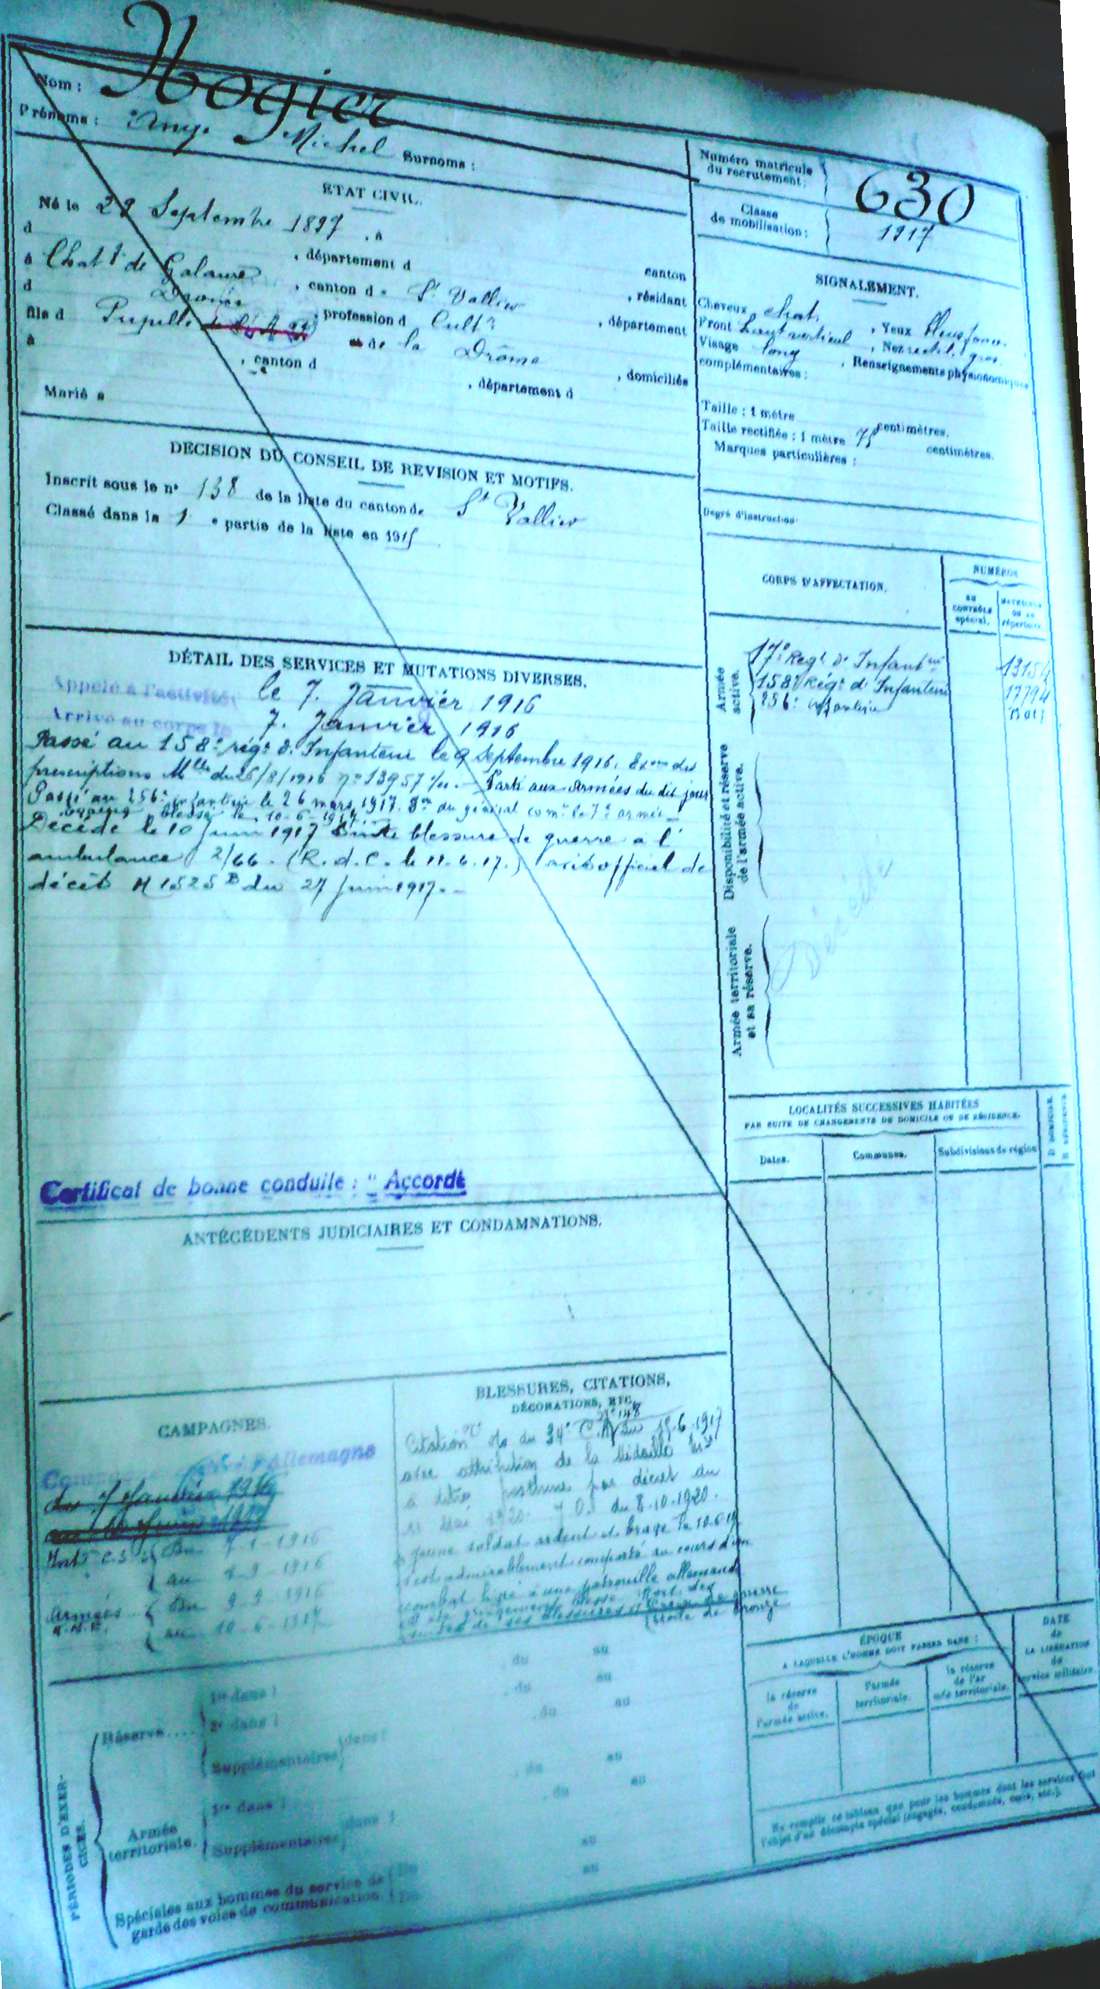 Nom : Nogier
Prénoms : Ange Michel Surnoms :
Numéro matricule du recrutement : 630
Classe de mobilisation : 1917
ÉTAT CIVIL.
Né le 28 Septembre 1897, à
d , département d canton
à Chatf de Galaure, canton d St Vallier, résidant
d Drôme, profession d Cultr, département
fils d Pupille de la Drôme, domiciliés
à , canton d , département d
Marié à
SIGNALEMENT.
Cheveux chat. , Yeux bleus
Front haut vertical , Nez rect. gros
Visage long , Renseignements physionomiques
complémentaires :
Taille : 1 mètre centimètres.
Taille rectifiée : 1 mètre 75 centimètres.
Marques particulières :
Degré d'instruction
DÉCISION DU CONSEIL DE RÉVISION ET MOTIFS.
Inscrit sous le n° 138 de la liste du canton de St Vallier
Classé dans la 1e partie de la liste en 1915
DÉTAIL DES SERVICES ET MUTATIONS DIVERSES.
Appelé à l'activité le 7 Janvier 1916
Arrivé au corps le 7 Janvier 1916
Passé au 158e régt d'Infanterie le 9 Septembre 1916.
prescriptions Mlles du 26/8/1916 n° 13957 Parti aux Armées du dit jour
Passé au 256e infanterie le 26 mars 1917. du général comt la 7e armée
blessé le 10-6-1917
Décédé le 10 Juin 1917 Suite blessure de guerre à l'
ambulance 2/66. (R.d.C. le 11.6.17.) avis officiel de
décès M 1525 B du 27 Juin 1917.
CORPS D'AFFECTATION.
NUMÉROS
AU CONTRÔLE spécial.
MATRICULE OU AU répertoire.
Armée active.
17e Régt d'Infanterie
158e Régt d'Infanterie 17794
256e infanterie
Disponibilité et réserve de l'armée active.
Armée territoriale et sa réserve.
Décédé
LOCALITÉS SUCCESSIVES HABITÉES
PAR SUITE DE CHANGEMENTS DE DOMICILE OU DE RÉSIDENCE.
Dates. Communes. Subdivisions de région
Certificat de bonne conduite : " Accordé
ANTÉCÉDENTS JUDICIAIRES ET CONDAMNATIONS.
CAMPAGNES.
Allemagne
du 7 Janvier 1916
au 10 Juin 1917
Intr C.S. { Du 7-1-1916
{ au 8-9-1916
Armées { Du 9-9-1916
{ au 10-6-1917
BLESSURES, CITATIONS,
DÉCORATIONS, ETC.
n° 148
Citation du 34e C.A du 19.6.1917
avec attribution de la Médaille Mre
à titre posthume par décret du
11 Mai 1920. J.O. du 8.10.1920.
jeune soldat ardent et brave le 10.6.17
s'est admirablement comporté au cours d'un
combat livré à une patrouille allemande
a été grièvement blessé. Mort des
suites de ses blessures Croix de guerre
étoile de bronze
PÉRIODES D'EXERCICES.
Réserve ....
1re dans l du au
2e dans l du au
Supplémentaires dans l du au
Armée territoriale.
1re dans l du au
Supplémentaires dans l du au
Spéciales aux hommes du service de
garde des voies de communication.
ÉPOQUE
A LAQUELLE L'HOMME DOIT PASSER DANS :
la réserve de l'armée active.
l'armée territoriale.
la réserve de l'armée territoriale.
DATE de LA LIBÉRATION du service militaire.
Ne remplir ce tableau que pour les hommes dont les services font
l'objet d'un décompte spécial (engagés, condamnés, omis, etc.).